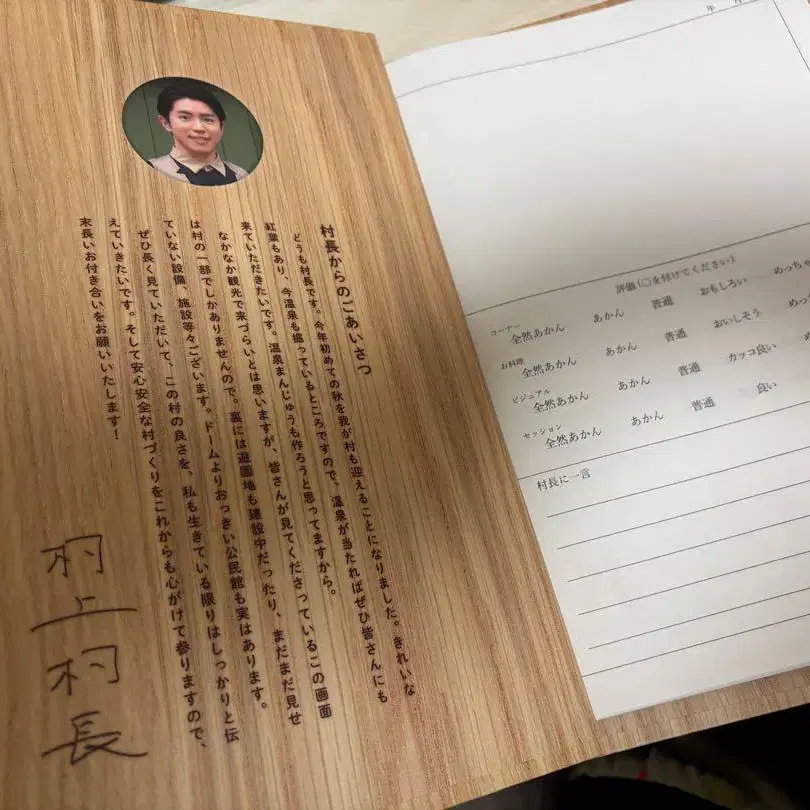 村長からのごあいさつ
どうも村長です。今年初めての秋を我が村も迎えることになりました。きれいな
紅葉もあり、今温泉も掘っているところですので、温泉が当たればぜひ皆さんにも
来ていただきたいです。温泉まんじゅうも作ろうと思ってますから。
なかなか観光で来づらいとは思いますが、皆さんが見てくださっているこの画面
は村の一部でしかありませんので。裏には遊園地も建設中だったり、まだまだ見せ
ていない設備、施設等々ございます。ドームよりおっきい公民館も実はあります。
ぜひ長く見ていただいて、この村の良さを、私も生きている限りはしっかりと伝
えていきたいです。そして安心安全な村づくりをこれからも心がけて参りますので、
末長いお付き合いをお願いいたします！
村上村長
年 月
評価(○を付けてください)
コーナー
全然あかん あかん 普通 おもしろい めっちゃ
お料理
全然あかん あかん 普通 おいしそう めっ
ビジュアル
全然あかん あかん 普通 カッコ良い め
セッション
全然あかん あかん 普通 良い
村長に一言